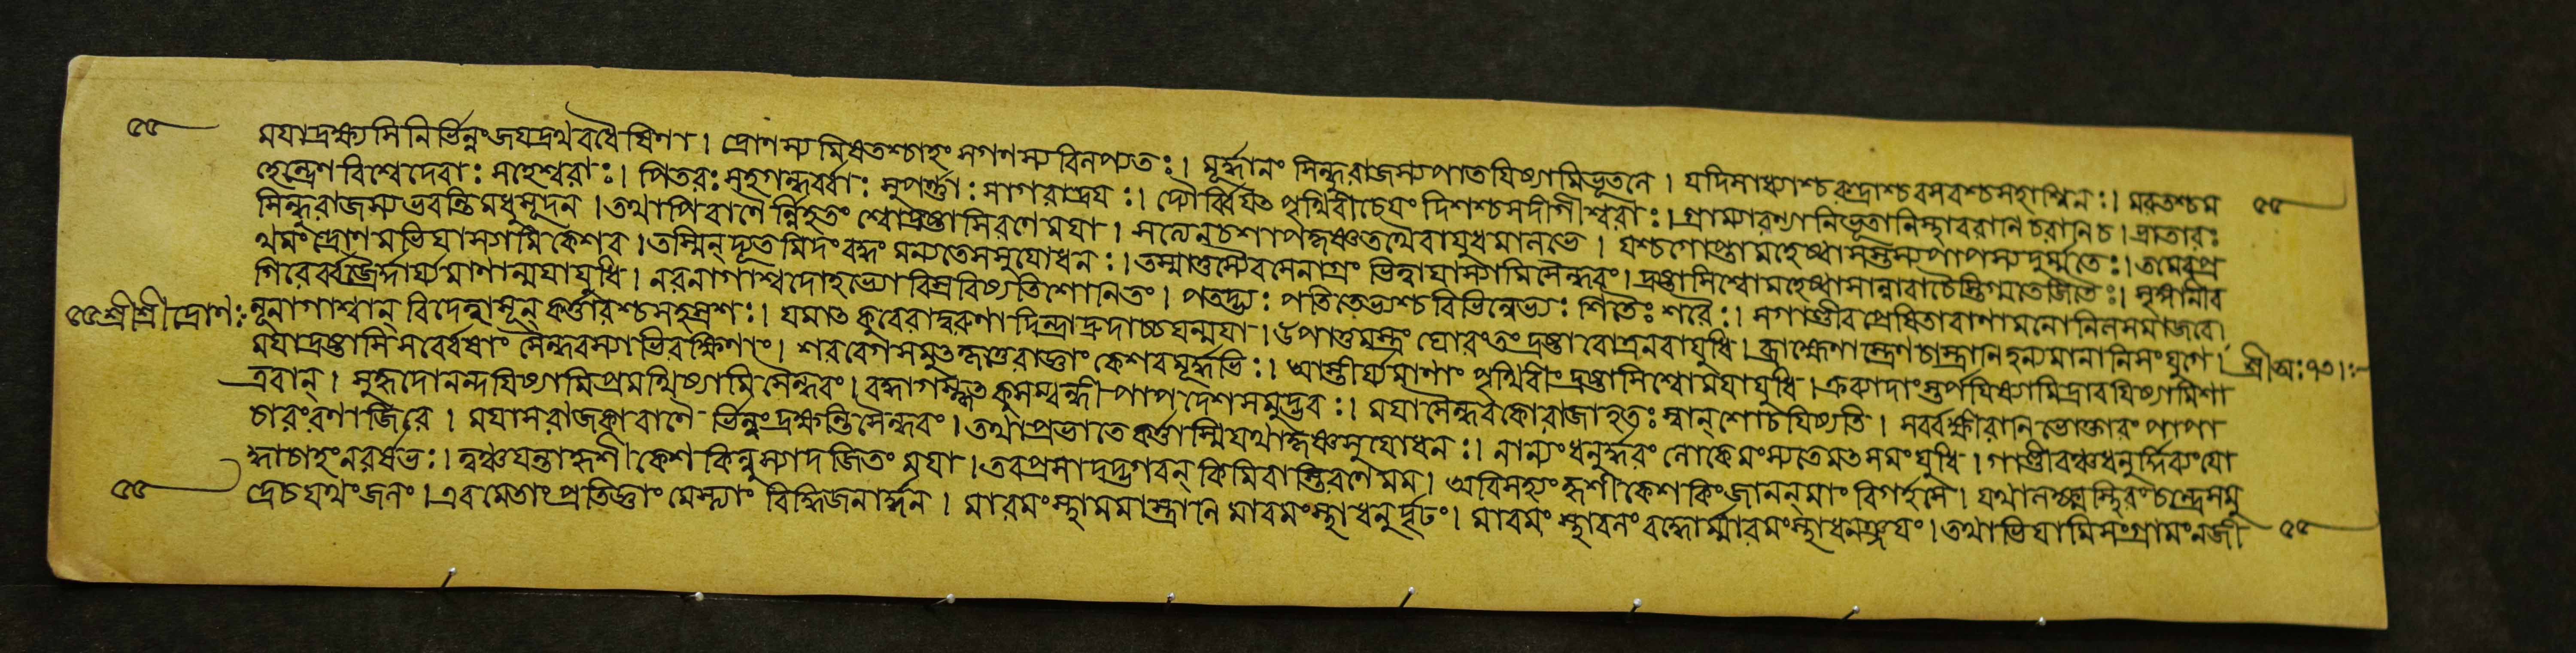 ৫৫ ময়াদ্রক্ষ্যসি নির্ভিন্নং জয়দ্রথবধৈষিণা । দ্রোণস্য মিষতশ্চাহং সগণস্য বিলপ্যতঃ । মূর্দ্ধানং সিন্ধুরাজস্য পাতয়িষ্যামি ভূতলে । যদি সাধ্যাশ্চ রুদ্রাশ্চ বসবশ্চ সহাশ্বিনঃ । মরুতশ্চ ম ৫৫
হেন্দ্রেণ বিশ্বেদেবাঃ সহেশ্বরাঃ । পিতরঃ সহগন্ধর্ব্বাঃ সুপর্ণ্ণাঃ সাগরাদ্রয়ঃ । দ্যৌর্ব্বিয়ৎ পৃথিবী চেয়ং দিশশ্চ সদীগীশ্বরাঃ । গ্রাম্যারণ্যানি ভূতানি স্থাবরানি চরানি চ । ত্রাতারঃ
সিন্ধুরাজস্য ভবন্তি মধুসূদন । তথাপি বাণৈর্ন্নিহতং শ্বোদ্রষ্টাসি রণে ময়া । সত্যেন চ শপে কৃষ্ণ তথৈবায়ুধমালভে । যশ্চ গোপ্তা মহেষ্বাসস্তস্য পাপস্য দুর্ম্মতেঃ । তমেব প্র
থমং দ্রোণমভিযাস্যামি কেশব । তস্মিন্ দ্যূতমিদং বদ্ধং মন্যতে স সুযোধনঃ । তস্মাত্তস্যৈব সেনাগ্রং ভিত্ত্বা যাস্যামি সৈন্ধবং । দ্রষ্টাসি শ্বো মহেষ্বাসান্নারাচৈস্তিগ্মতেজিতৈঃ । শৃঙ্গানীব
গিরের্ব্বজ্রৈর্দ্দার্য্যমাণান্ময়া যুধি । নরনাগাশ্বদেহেভ্যো বিস্রবিষ্যতি শোনিতং । পতদ্ভ্যঃ পতিতেভ্যশ্চ বিভিন্নেভ্যঃ শিতৈঃ শরৈঃ । স গাণ্ডীবপ্রেষিতা বাণা মনোনিলসমাজবে ।
৫৫ শ্রীশ্রীদ্রোণঃ নৃনাগাশ্বান্ বিদেহাসূন্ কর্ত্তারশ্চ সহস্রশঃ । যমাৎ কুবেরাদ্বরুণাদিন্দ্রাদ্রুদ্রাচ্চ যন্ময়া । উপাত্তমস্ত্রং ঘোরং তং দ্রষ্টারোত্র নরা যুধি । ব্রাহ্মেণাস্ত্রেণ চাস্ত্রানি হন্যমানানি সংযুগে । শ্রীঅঃ ৭৩ ।
ময়া দ্রষ্টাসি সর্ব্বেষাং সৈন্ধবস্যাভিরক্ষিণাং । শরবেগসমুৎকৃত্তৈ রাজ্ঞাং কেশব মূর্দ্ধভিঃ । আস্তীর্য্যমাণাং পৃথিবীং দ্রষ্টাসি শ্বো ময়া যুধি । ক্রব্যাদাংস্তর্পয়িষ্যামি দ্রাবয়িষ্যামি শা
ত্রবান্ । সুহৃদো নন্দয়িষ্যামি প্রমথিষ্যামি সৈন্ধবং । বহ্বাগস্কৃৎ কুসম্বন্ধী পাপদেশসমুদ্ভবঃ । ময়া সৈন্ধবকো রাজা হতঃ স্বান্ শোচয়িষ্যতি । সর্ব্বক্ষীরানিভোক্তারং পাপা
চারং রণাজিরে । ময়া সরাজকা বাণৈর্ভিন্নং দ্রক্ষন্তি সৈন্ধবং । তথা প্রভাতে কর্ত্তাস্মি যথা কৃষ্ণ সুযোধনঃ । নান্যং ধনুর্দ্ধরং লোকে মংস্যতে মৎসমং যুধি । গাণ্ডীবঞ্চ ধনুর্দ্দিব্যং যো
দ্ধা চাহং নরর্ষভঃ । ত্বঞ্চ যন্তা হৃশীকেশ কিন্নু স্যাদজিতং ময়া । তব প্রসাদাদ্ভগবন্ কিমিবাস্তি রণে মম । অবিসহ্যং হৃশীকেশ কিং জানন্মাং বিগর্হসে । যথা লক্ষ্ম স্থিরং চন্দ্রে সমু
৫৫ দ্রে চ যথং জলং । এবমেতাং প্রতিজ্ঞাং মে সত্যাং বিদ্ধি জনার্দ্দন । মাবমংস্থা মমাস্ত্রানি মাবমংস্থা ধনুর্দৃঢং । মাবমংস্থা বলং বাহ্বোর্ম্মাবমংস্থা ধনঞ্জয়ং । তথাভিযামি সংগ্রামং ন জী ৫৫